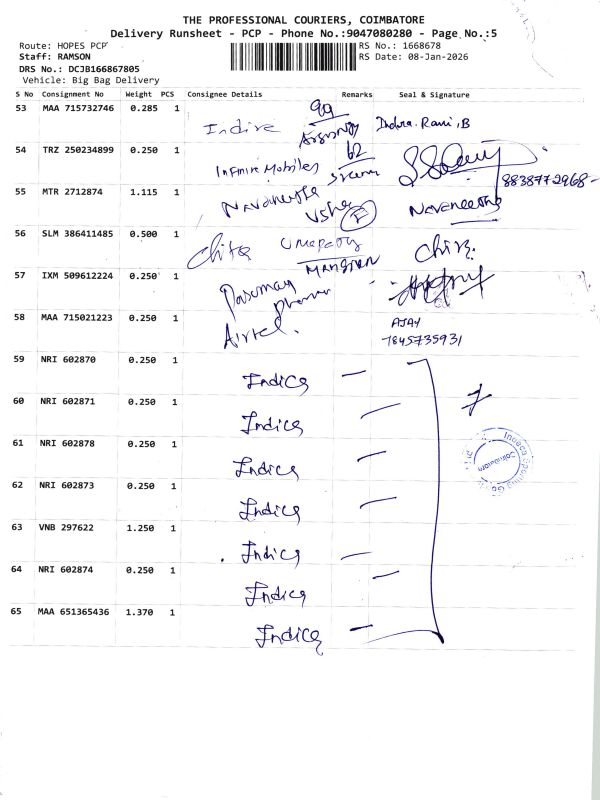 THE PROFESSIONAL COURIERS, COIMBATORE
Delivery Runsheet - PCP - Phone No.:9047080280 - Page No.:5
Route: HOPES PCP
RS No.: 1668678
Staff: RAMSON
RS Date: 08-Jan-2026
DRS No.: DCJB166867805
Vehicle: Big Bag Delivery
S No Consignment No Weight PCS Consignee Details Remarks Seal & Signature
53 MAA 715732746 0.285 1 99
Indira Indra.Rani,B
54 TRZ 250234899 0.250 1 62
Infinite Mobiles 8838772968
55 MTR 2712874 1.115 1 Navaneetha Usha Navaneetha
56 SLM 386411485 0.500 1 Chitra
57 IXM 509612224 0.250 1
58 MAA 715021223 0.250 1 Airtel. AJAY
7845735931
59 NRI 602870 0.250 1
Indica —
60 NRI 602871 0.250 1 7
Indica —
61 NRI 602878 0.250 1
Indica —
62 NRI 602873 0.250 1
Indica —
63 VNB 297622 1.250 1
Indica —
64 NRI 602874 0.250 1
Indica —
65 MAA 651365436 1.370 1
Indica —
Coimbatore